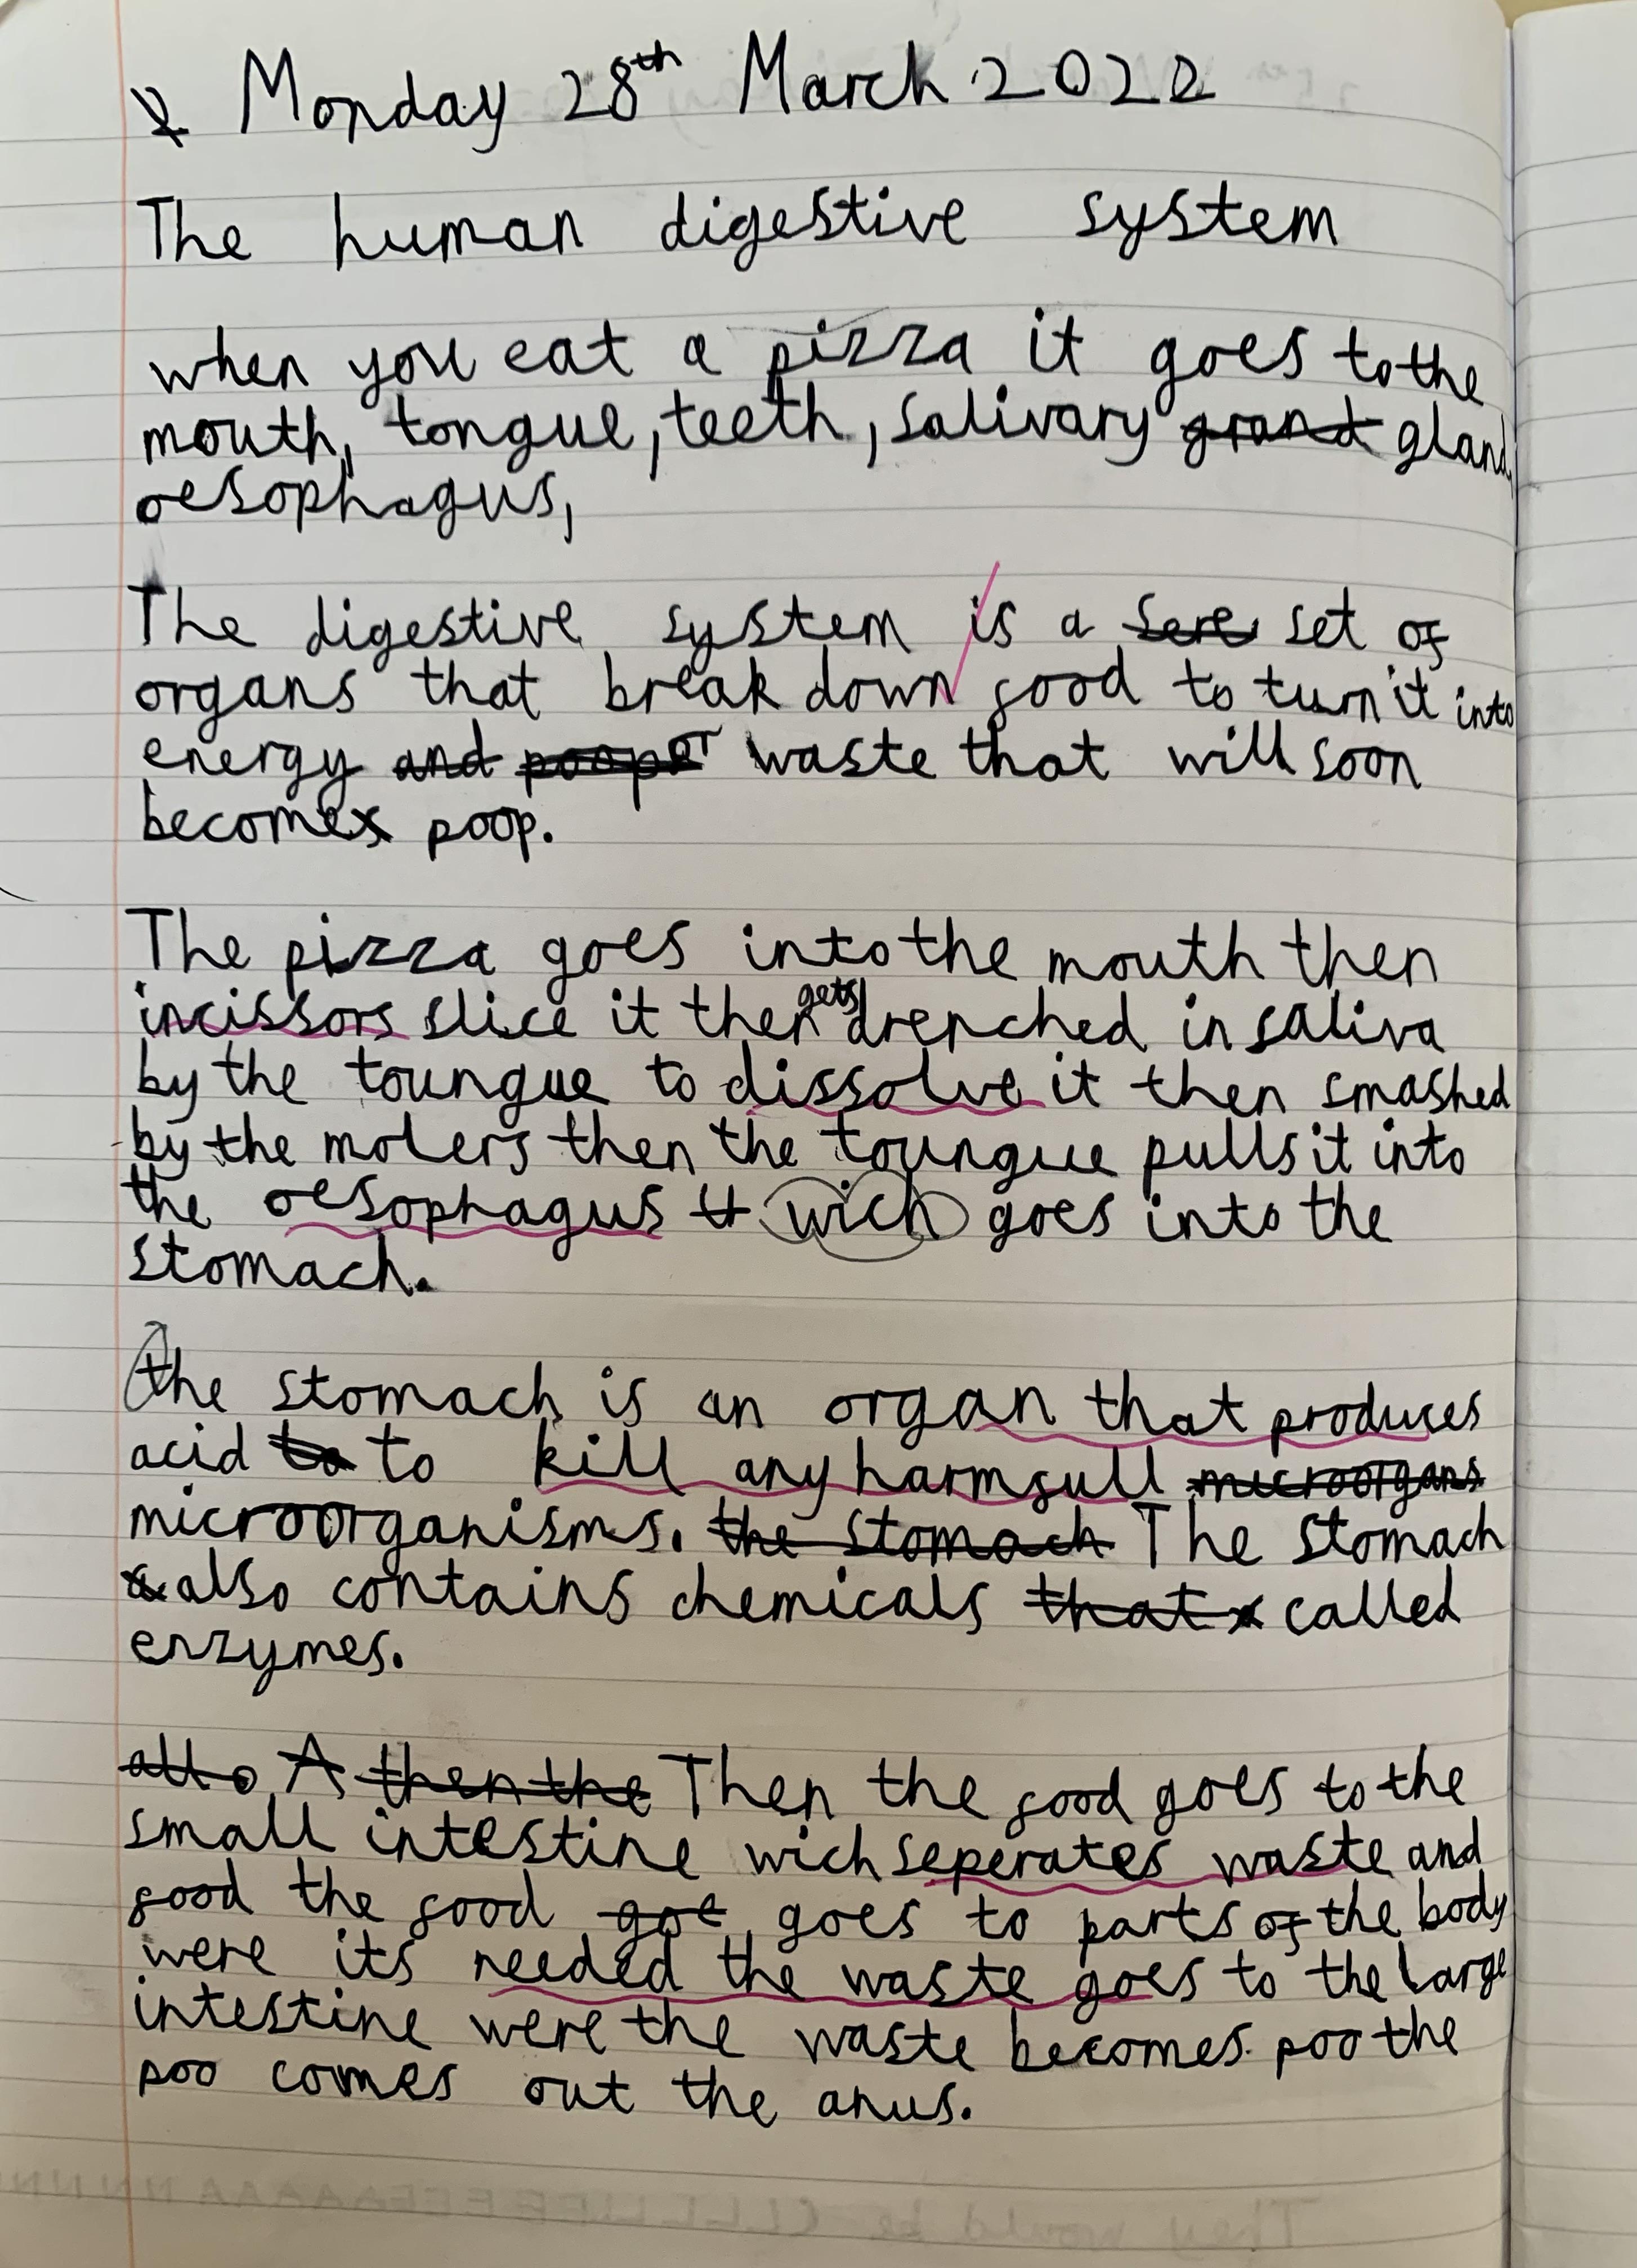 Monday 28th March 2022
The human digestive system
when you eat a pizza it goes to the
mouth, tongue, teeth, salivary grand gland,
oesophagus,
The digestive system is a set of
organs that break down food to turn it into
energy and poop or waste that will soon
become poop.
The pizza goes into the mouth then
incissors slice it then gets drenched in saliva
by the toungue to dissolve it then smashed
by the molers then the toungue pulls it into
the oesophagus wich goes into the
stomach.
the stomach is an organ that produces
acid to to kill any harmfull microorgans
microorganisms. the stomach The stomach
also contains chemicals that called
enzymes.
A then the Then the food goes to the
small intestine wich seperates waste and
food the food goe goes to parts of the body
were its needed the waste goes to the large
intestine were the waste becomes poo the
poo comes out the anus.